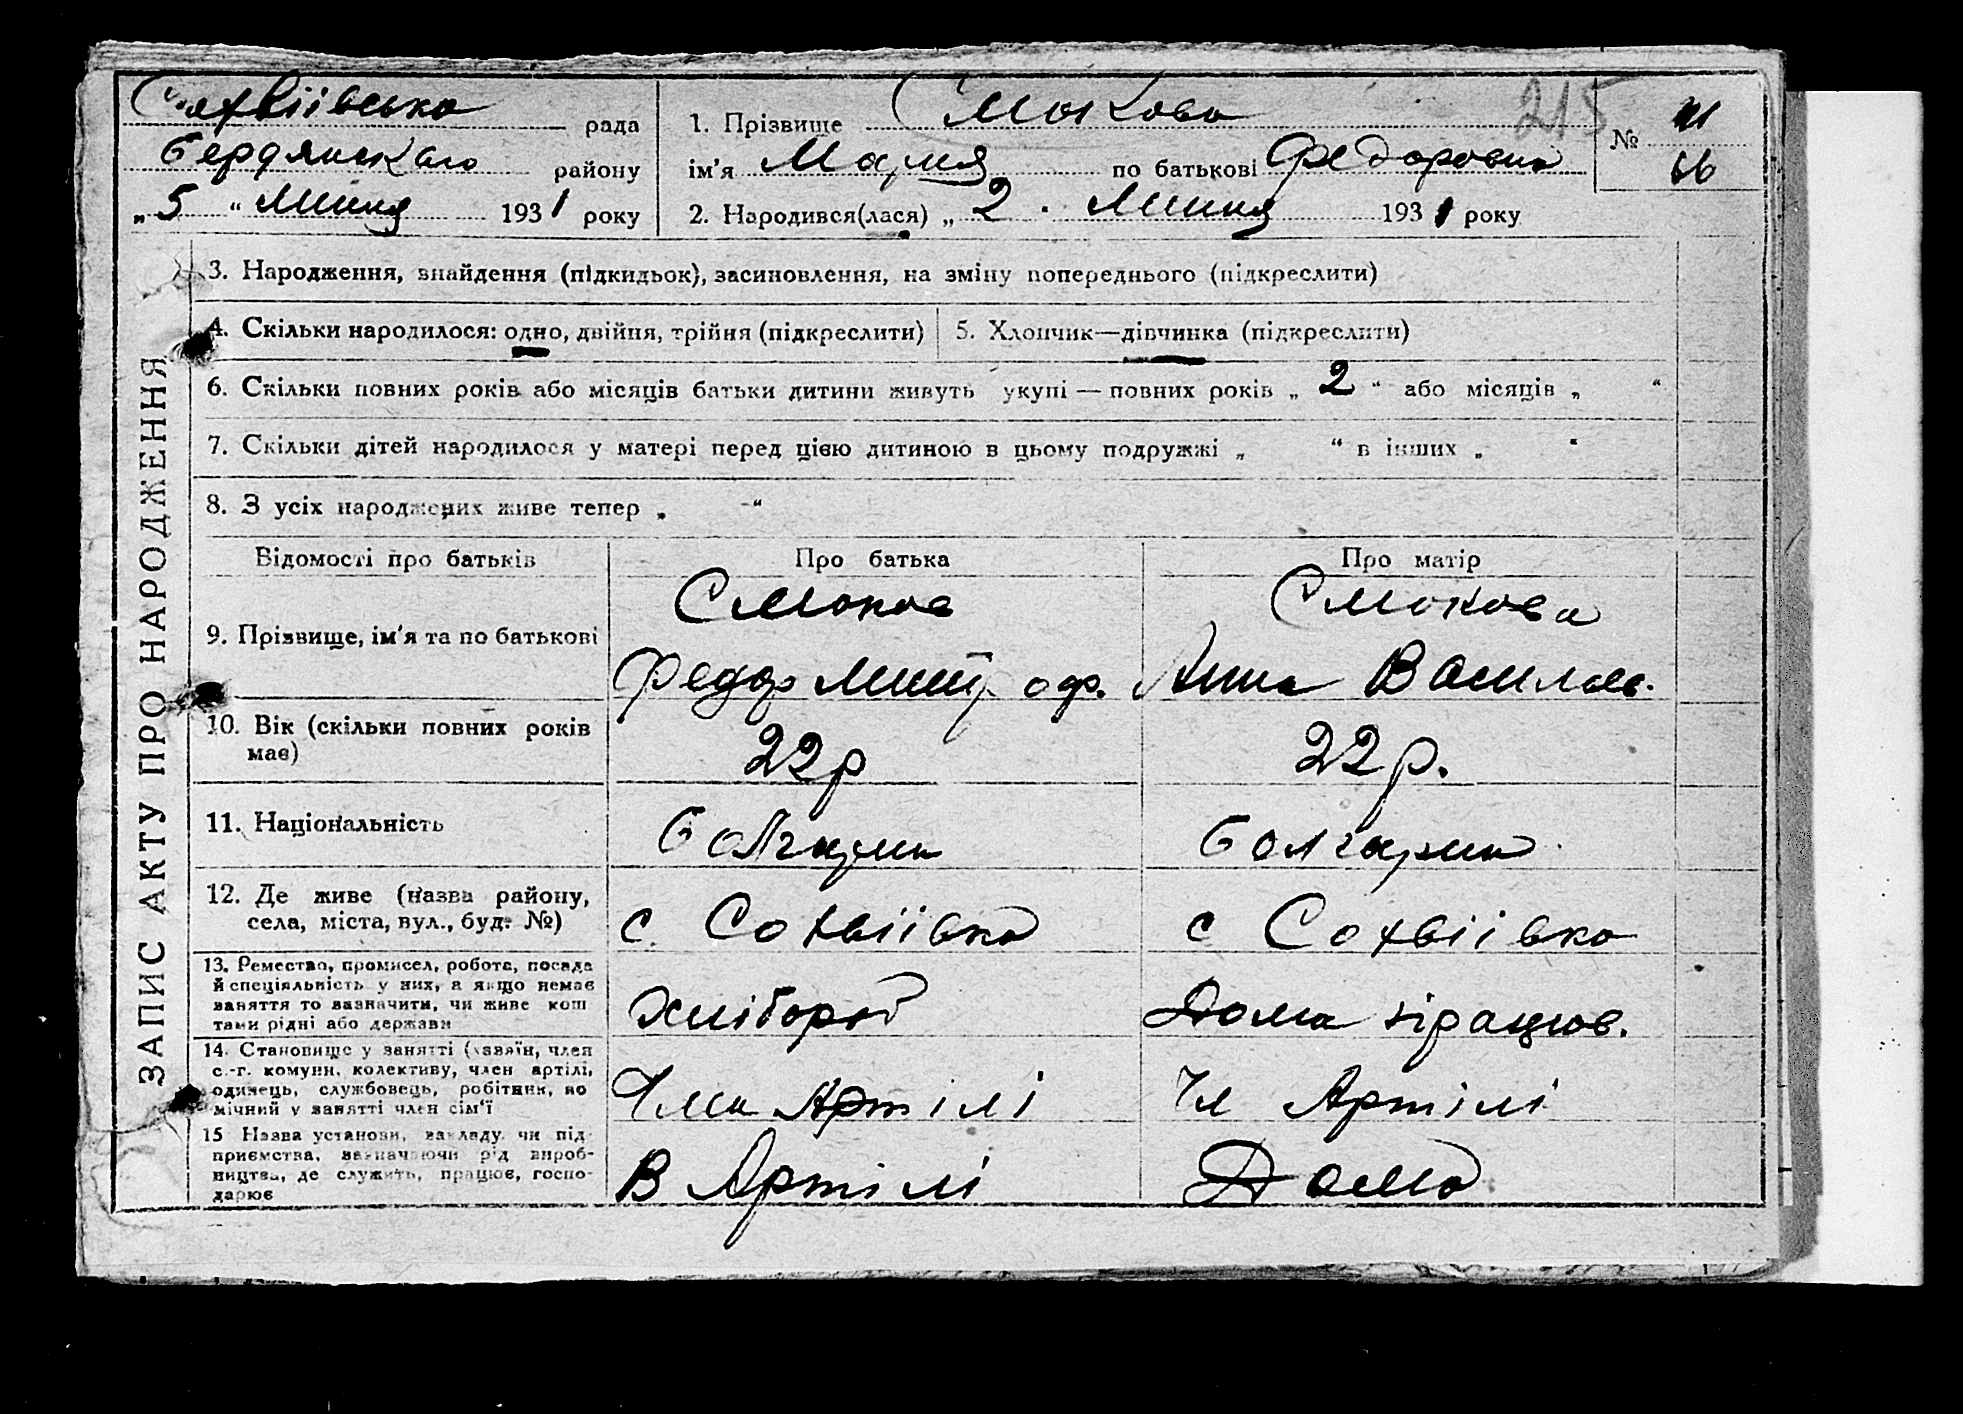 Сохвіївська рада
Бердянського району
„ 5 “ Липня 1931 року
1. Прізвище Смокова
ім'я Мария по батькові Федоровна
2. Народився(лася) „ 2 . Липня 1931 року
215
№ 41
66
3. Народження, знайдення (підкидьок), засиновлення, на зміну попереднього (підкреслити)
4. Скільки народилося: одно, двійня, трійня (підкреслити)
5. Хлопчик—дівчинка (підкреслити)
6. Скільки повних років або місяців батьки дитини живуть укупі — повних років „ 2 “ або місяців „ “
7. Скільки дітей народилося у матері перед цією дитиною в цьому подружжі „ “ в інших „ “
8. З усіх народжених живе тепер „ “
ЗАПИС АКТУ ПРО НАРОДЖЕННЯ
Відомості про батьків
Про батька
Про матір
9. Прізвище, ім'я та по батькові
Смоков
Федор Митр оф.
Смокова
Анна Василев.
10. Вік (скільки повних років
має)
22р
22р.
11. Національність
болгарин
болгарка
12. Де живе (назва району,
села, міста, вул., буд. №)
с Сохвіівка
с Сохвіівка
13. Ремество, промисел, робота, посада
й спеціяльність у них, а якщо немає
заняття то зазначити, чи живе кош
тами рідні або держави
Хлібороб
Дома працюв.
14. Становище у занятті (хазяїн, член
с.-г. комуни, колективу, член артілі,
одинець, службовець, робітник, по
мічний у занятті член сім'ї
Член Артілі
Чл Артілі
15 Назва установи, закладу чи під-
приємства, зазначаючи рід вироб-
ництва, де служить, працює, госпо-
дарює
В Артілі
Дома